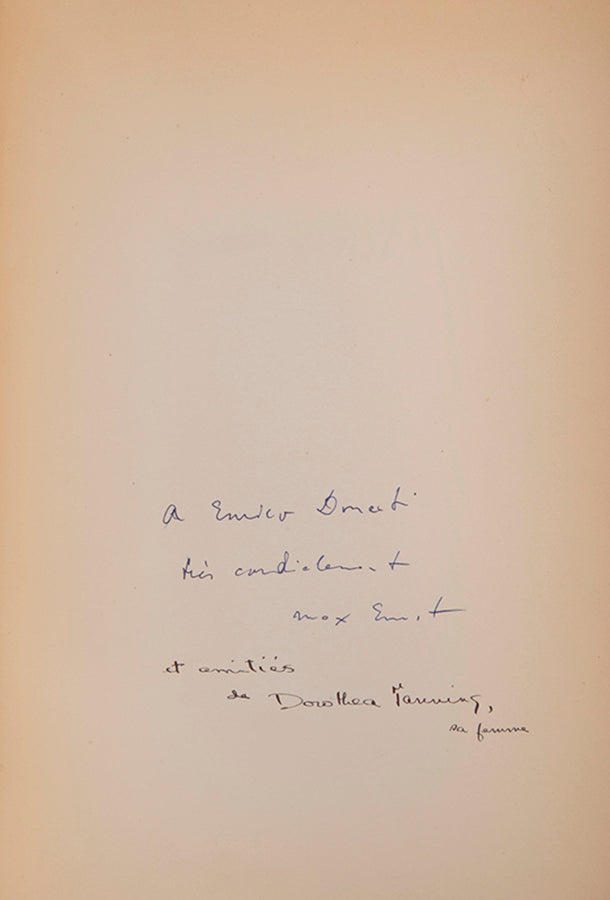 A Enrico Donati
très cordialement
max Ernst
et amitiés
de Dorothea Tanning,
sa femme